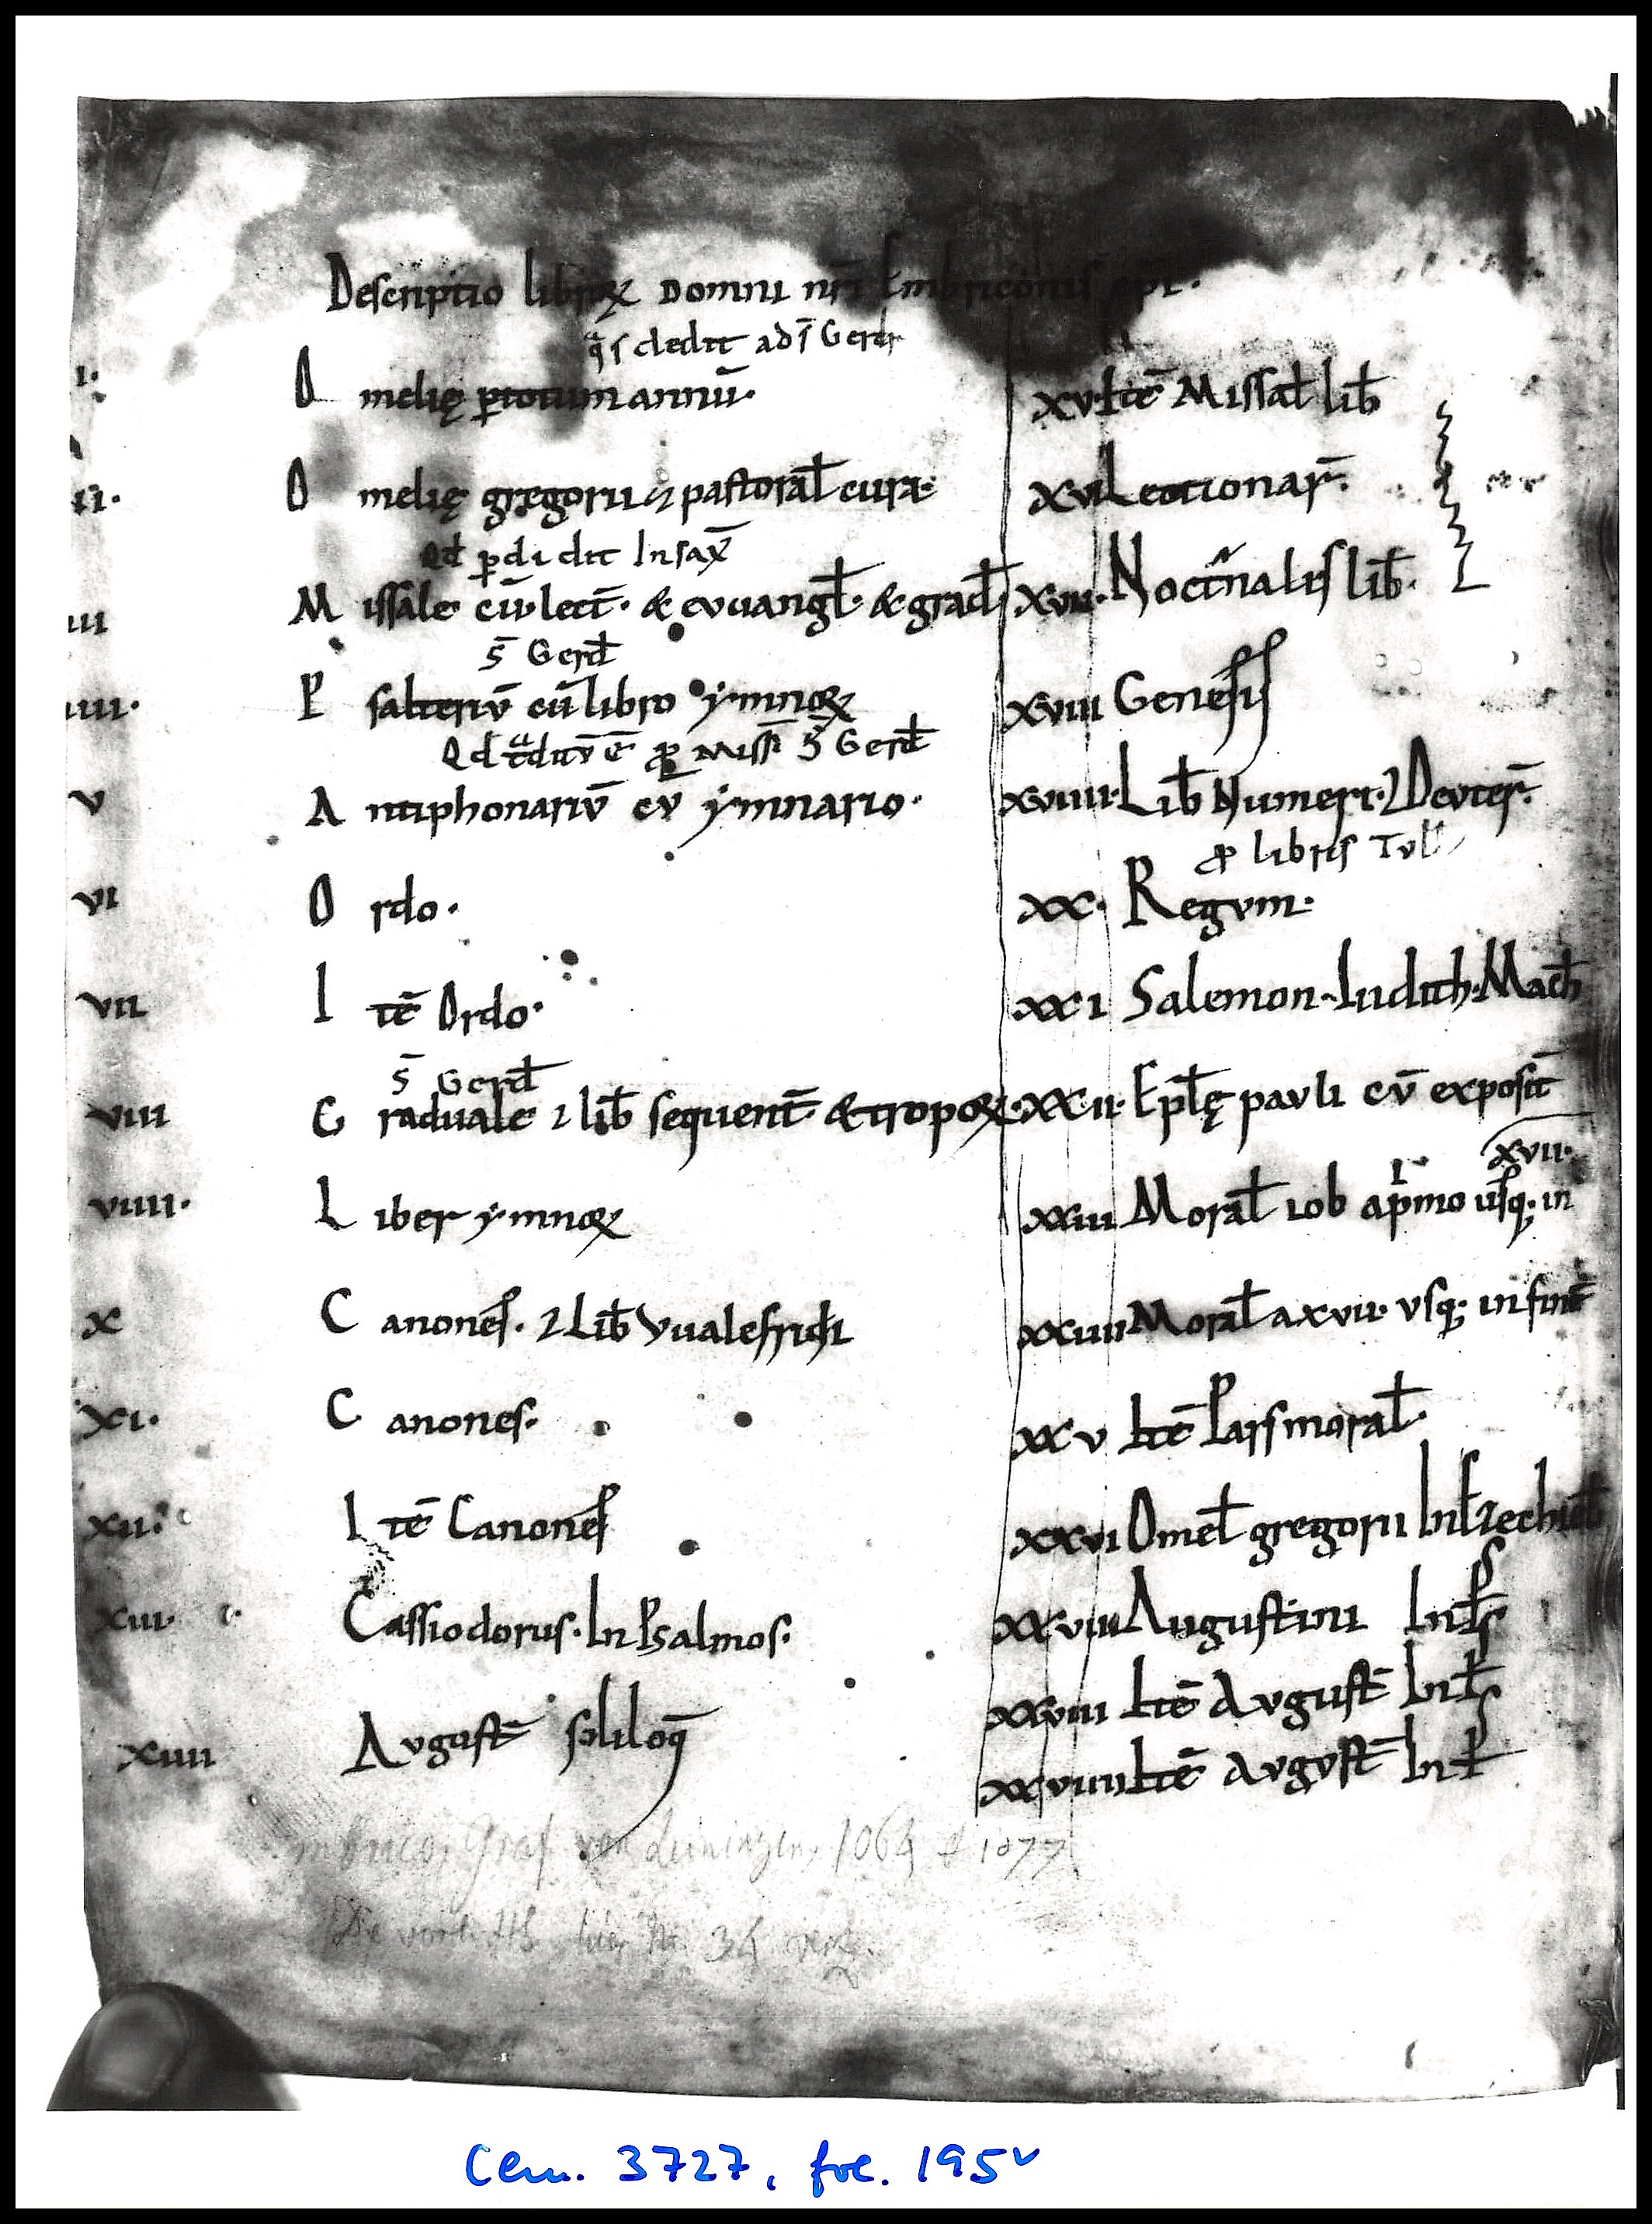 Descriptio libroꝝ Domni nr̄i Embriconis ep̄i.
qͣs dedit ad s̄ Gerdr
i. O melię ꝑtotum annū.
ii. O melię gregorii ⁊ pastoral̄ cura.
Qd ꝑdidit In sax̄
iii M issale cū lect̄. & evvangl̄. & grad̄
s̄ Gerd̄
iiii. P salteriv̄ cū libro ẏmnoꝝ
Qd tͣditv̄ ē ꝓ miss̄ s̄ Gerd̄
v A ntiphonariv̄ cv̄ ẏmnario.
vi O rdo.
vii I tē Ordo.
s̄ Gerd̄
viii G raduale ⁊ lib̄ sequent̄ & tropoꝝ.
viiii. L iber ymnoꝝ
x C anones. ⁊ Lib̄ VValefridi
xi. C anones.
xii. I tē Canones
xiii. Cassiodorus. In Psalmos.
xiiii Avgust̄ soliloq̄
xv. Itē Missal̄ lib̄
xvi Lectionar̄.
xvii. Noct̄nalis lib̄.
xviii Genesis
xviiii. Lib̄ Numeri. ⁊ Devter̄.
ꝓ libris Tvll
xx. Regvm.
xxi Salemon. Iudith. Mach̄
xxii. Epl̄ę pavli cv̄ exposit̄
xvii.
xxiii Moral̄ iob apͥmo usq; in
xxiiii Moral̄ a xvii. vsq; in finē
xxv Itē Pars moral̄.
xxvi Omel̄ gregorii In Ezechiel̄
xxvii Augustini In Ps̄
xxviii Itē Avgust̄ In Ps̄
xxviiii Itē Avgvst̄ In Ps̄
Graf von Leiningen, 1064 † 1077
Clm. 3727, fol. 195ᵛ